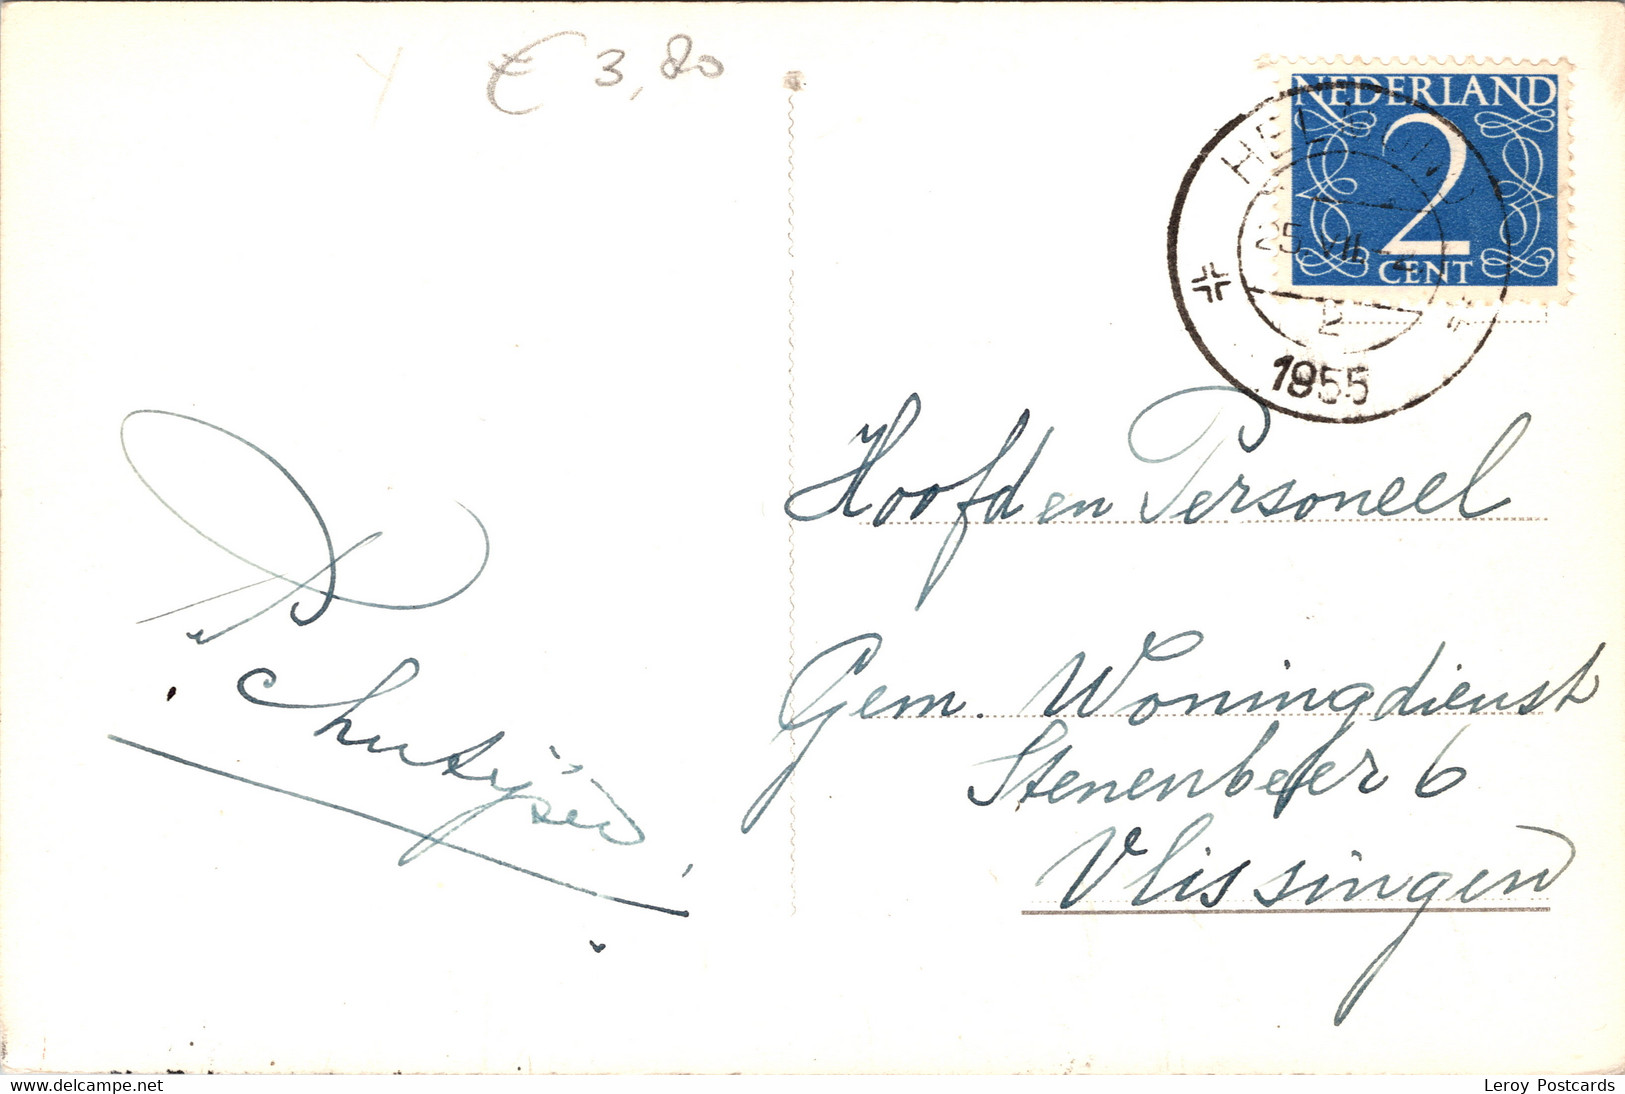 € 3,80
NEDERLAND
2
CENT
HELMOND
25.VII.
2
1955
Hoofd en Personeel
Gem. Woningdienst
Stenenbeer 6
Vlissingen
www.delcampe.net
Leroy Postcards